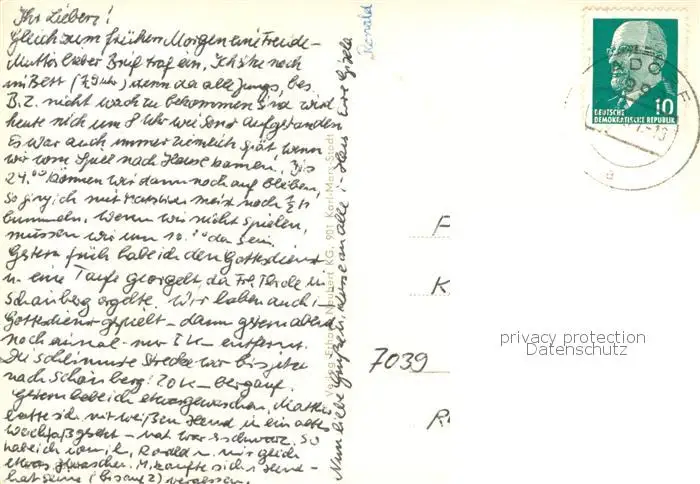 Ihr Lieben!
Gleich zum frühen Morgen eine Freude –
Mutters lieber Brief traf ein. Ich sitze noch
im Bett (½9 Uhr) denn da alle Jungs, bes.
B. Z. nicht wach zu bekommen sind wird
heute nicht um 8 Uhr wie sonst aufgestanden
Es war auch immer ziemlich spät wenn
wir vom Spiel nach Hause kamen, bis
24.00 können wir dann noch aufbleiben,
So ging ich mit meist noch
bummeln. Wenn wir nicht spielen,
müssen wir um 10.00 da sein.
Gestern früh habe ich den Gottesdienst
u. eine Taufe georgelt, da Frl. in
Schönberg orgelte. Wir haben auch i.
Gottesdienst gespielt – dann gestern abend
noch einmal – nur 2 K – entfernt.
Die schlimmste Strecke war bis jetzt
nach Schönberg: 20 K – bergauf.
Gestern habe ich etwas gewaschen,
hatte sich mit weißen Hemd in ein altes
gesetzt – war schwarz. So
habe ich von ihm, Ronald u. mir gleich
etwas gewaschen. M. kaufte sich 1 Hemd –
hat seine (bis auf 2) vergessen.
Nun liebe Grüße an alle i. Haus Eure Gisela
Ronald
Verlag Erhard Neubert KG, 901 Karl-Marx-Stadt
DEUTSCHE
DEMOKRATISCHE REPUBLIK
10
P
K
7039
R
privacy protection
Datenschutz